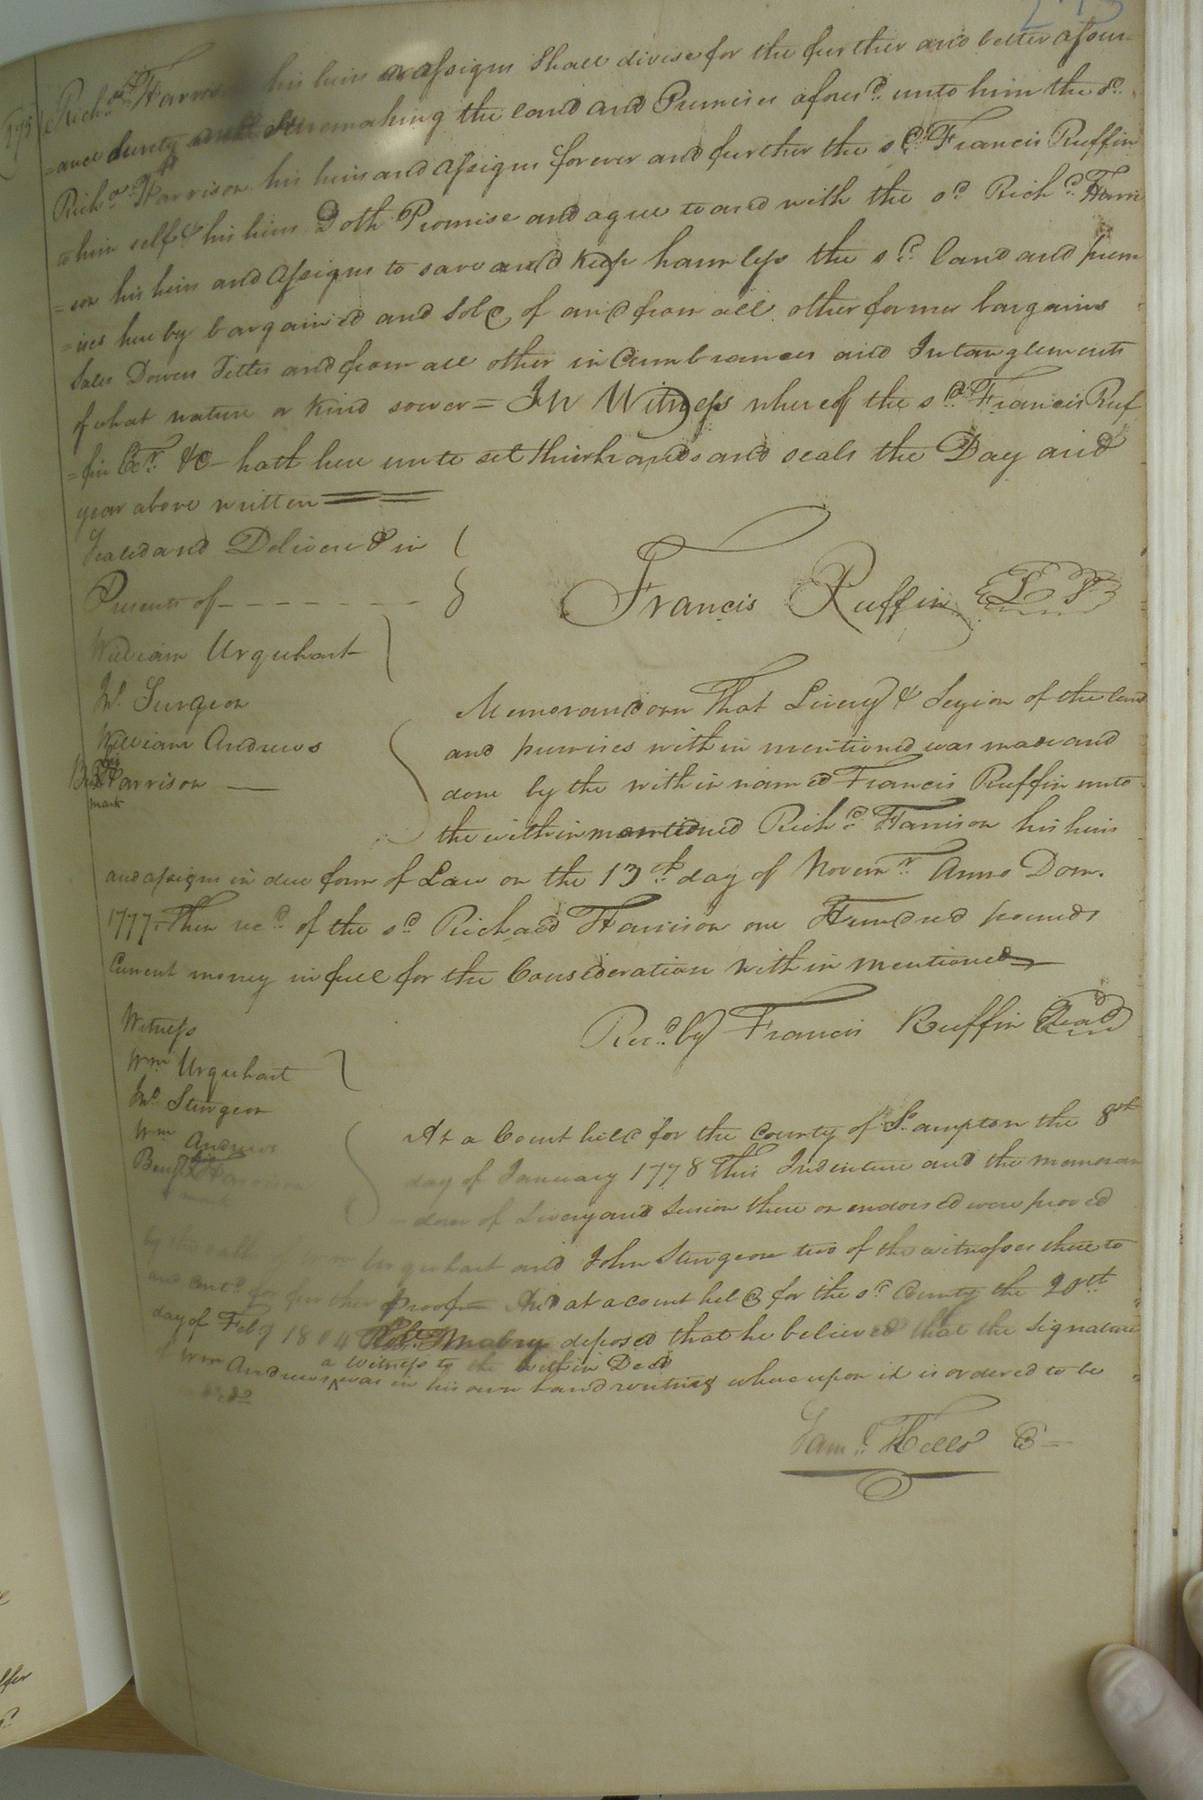 Rich.d Harrison his heirs or assigns Shall divise for the further and better assur=
=ance surety making the land and Premises afores.d unto him the s.d
Rich.d Harrison his heirs and assigns forever and further the s.d Francis Ruffin
to him self & his heirs Doth Promise and agree to and with the s.d Rich.d Harri
=son his heirs and assigns to save and keep harmless the s.d land and prem
=ises hereby bargained and Sold, of and from all other former bargains
Sales Dowers Titles and from all other incumbrances and Intanglements
of what nature or kind soever = In Witness whereof the s.d Francis Ruf
=fin &c.r &c hath here unto set their hands and seals the Day and
year above written
Sealed and Delivered in
Presents of
Francis Ruffin LS
William Urquhart
Jn.o Surgeon
William Andrews
his
Harrison
mark
Memorandom That Livery & Sezion of the land
and premises within mentioned was made and
done by the within named Francis Ruffin unto
the within mentioned Rich.d Harrison his heirs
and assigns in due form of Law on the 13.th day of Novem.r Anno Dom.
1777. Then rec.d of the s.d Richard Harrison one Hundred pounds
Current money in full for the Consideration within mentioned
Rec.d by Francis Ruffin Seal
Witness
Wm Urquhart
Jn.o Sturgeon
Wm Andrews
Benj.a Harrison
mark
At a Court held for the County of S.ampton the 8th
day of January 1778 This Indenture and the memoran
=dom of Livery and Seision there on endorsed were proved
by the oath Urquhart and John Sturgeon two of the witnesses there to
and Cont.d for further proof = And at a court held for the s.d County the 20th
day of Feb.y 1804 Rob.t Mabry deposed that he believed that the signature
a witness to the within Deed
of Wm Andrews ^ was in his own hand writing where upon it is ordered to be
Sam.l Kello C